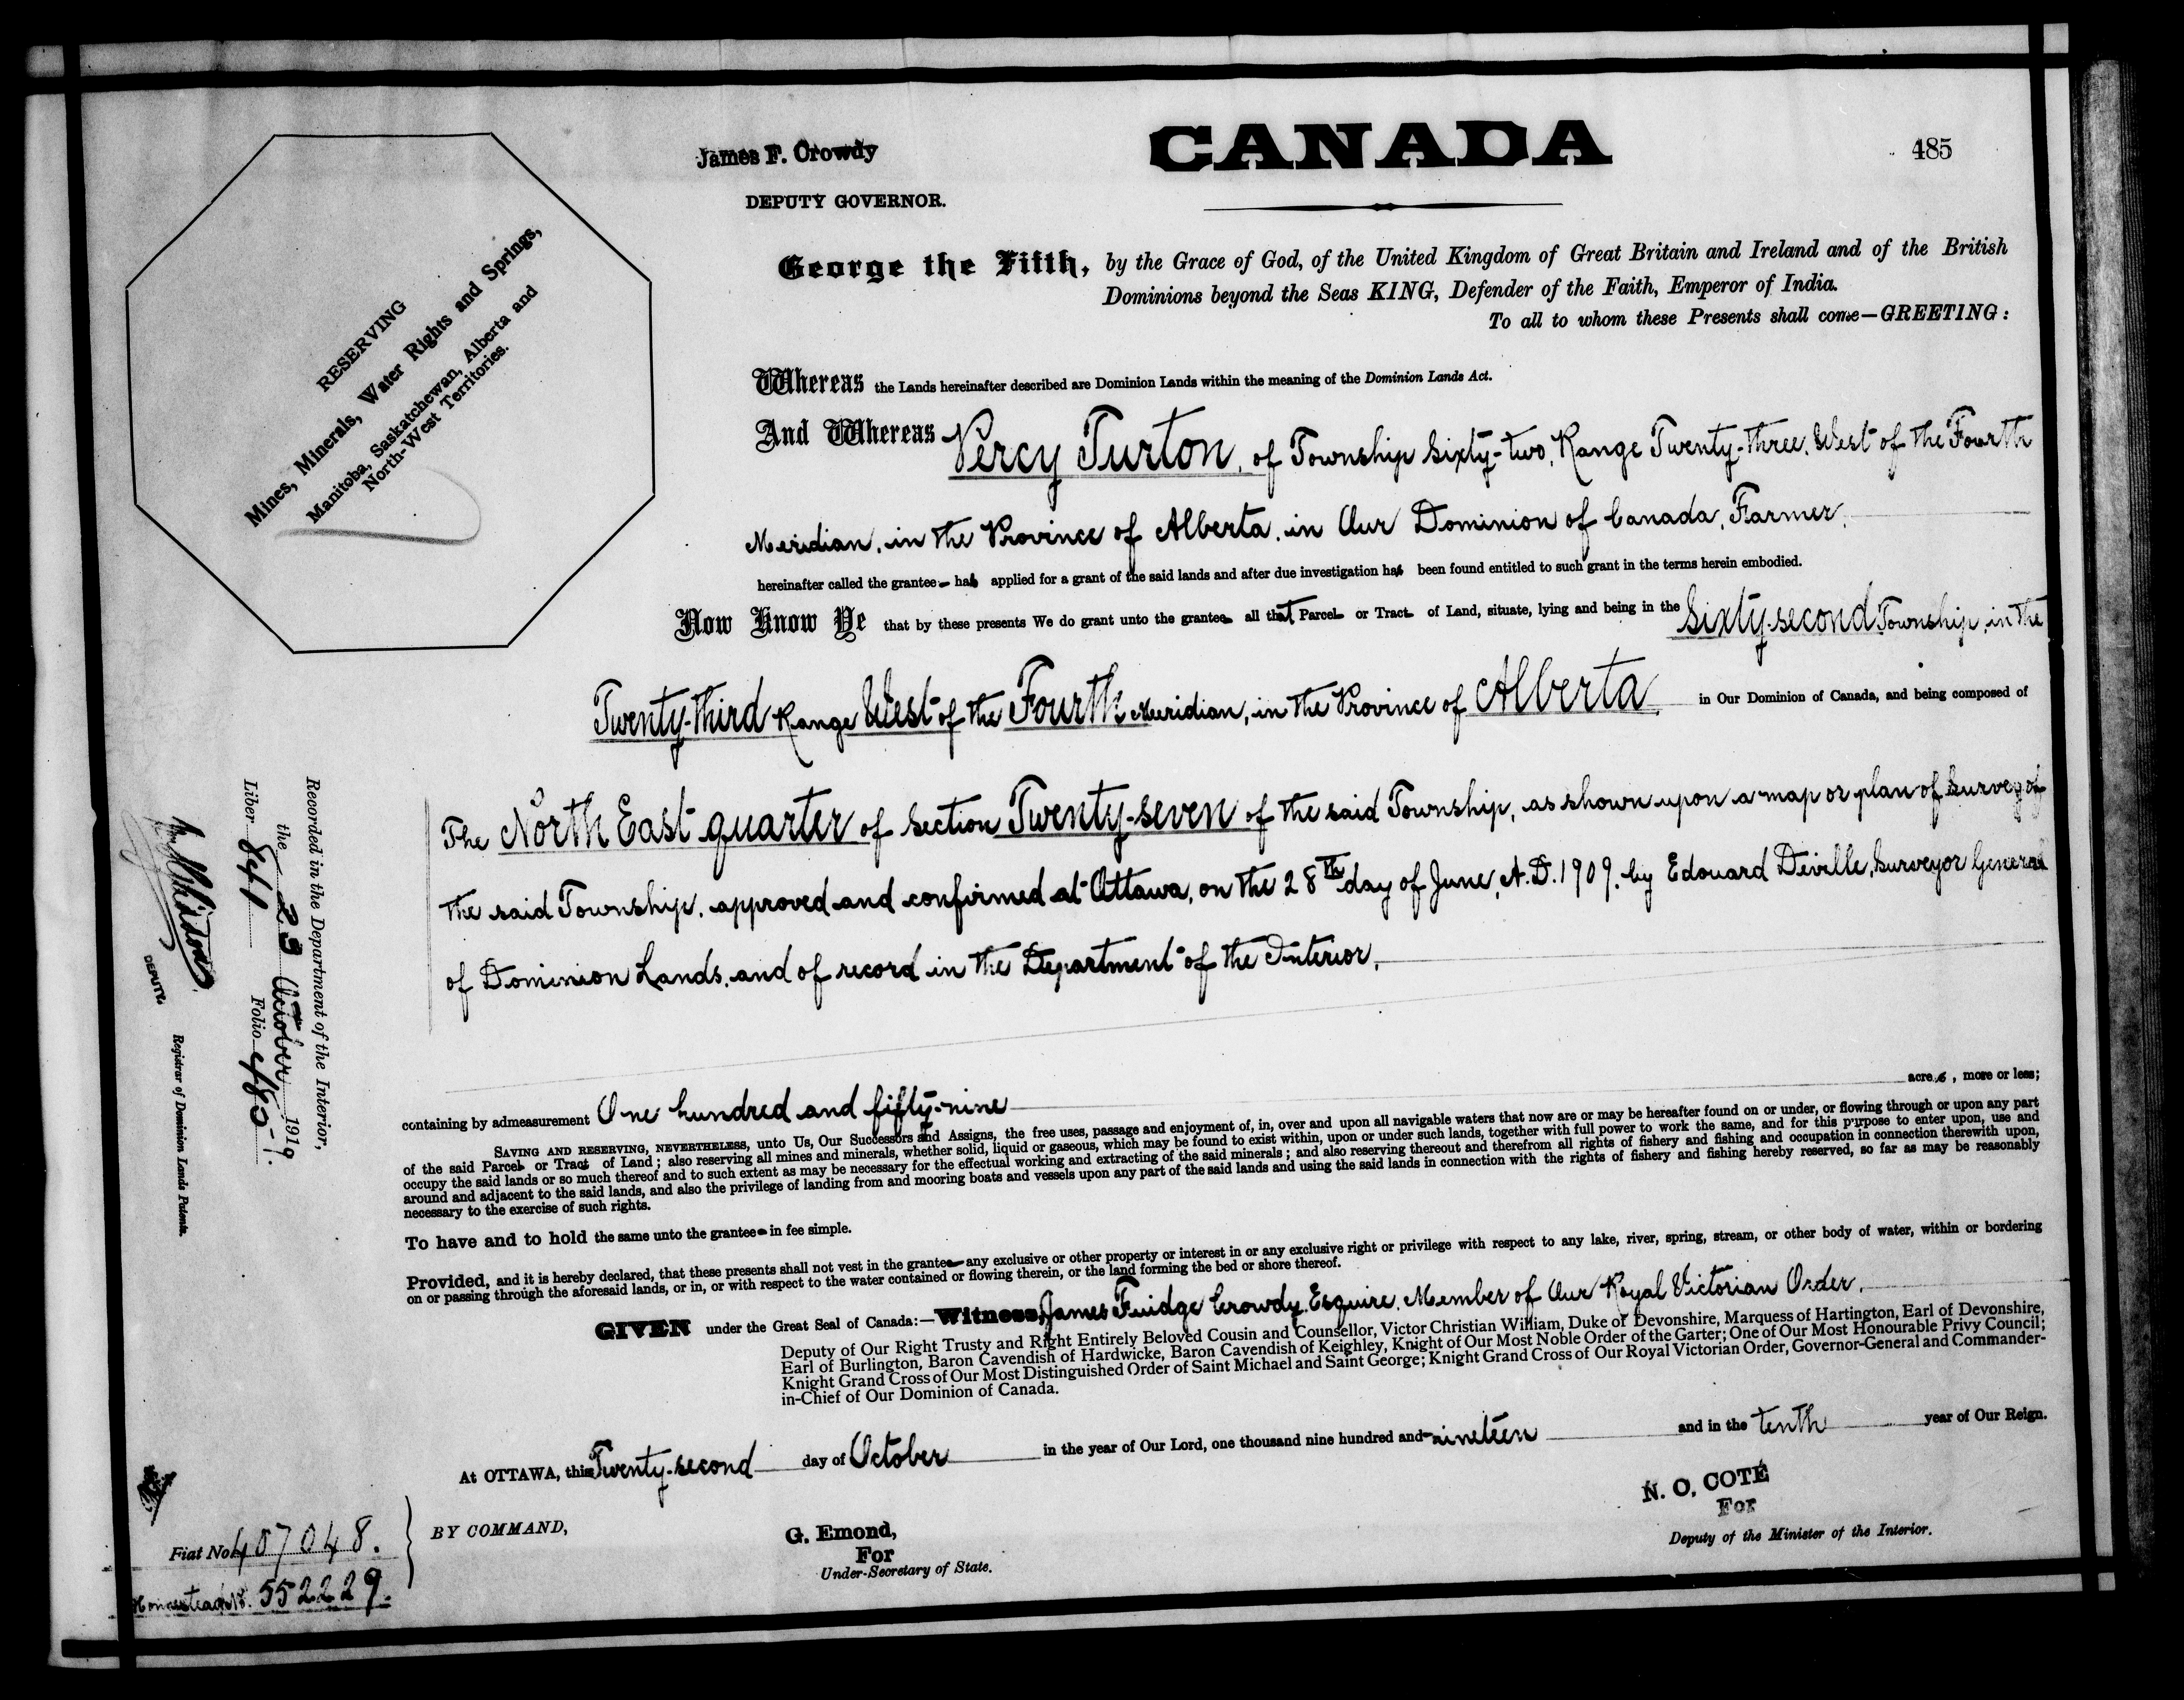 James F. Crowdy
DEPUTY GOVERNOR.
CANADA
485
RESERVING
Mines, Minerals, Water Rights and Springs,
Manitoba, Saskatchewan, Alberta and
North-West Territories.
George the Fifth, by the Grace of God, of the United Kingdom of Great Britain and Ireland and of the British
Dominions beyond the Seas KING, Defender of the Faith, Emperor of India.
To all to whom these Presents shall come—GREETING:
Whereas the Lands hereinafter described are Dominion Lands within the meaning of the Dominion Lands Act.
And Whereas Percy Turton, of Township Sixty-two, Range Twenty-three, West of the Fourth
Meridian, in the Province of Alberta, in Our Dominion of Canada, Farmer,
hereinafter called the grantee has applied for a grant of the said lands and after due investigation has been found entitled to such grant in the terms herein embodied.
Now Know Ye that by these presents We do grant unto the grantee all that Parcel or Tract of Land, situate, lying and being in the Sixty-second Township, in the
Twenty-third Range West of the Fourth Meridian, in the Province of Alberta in Our Dominion of Canada, and being composed of
The North East quarter of Section Twenty-seven of the said Township, as shown upon a map or plan of Survey of
the said Township, approved and confirmed at Ottawa, on the 28th day of June, A.D. 1909, by Edouard Deville, Surveyor General
of Dominion Lands, and of record in the Department of the Interior,
containing by admeasurement One hundred and fifty-nine acres, more or less;
SAVING AND RESERVING, NEVERTHELESS, unto Us, Our Successors and Assigns, the free uses, passage and enjoyment of, in, over and upon all navigable waters that now are or may be hereafter found on or under, or flowing through or upon any part
of the said Parcel or Tract of Land; also reserving all mines and minerals, whether solid, liquid or gaseous, which may be found to exist within, upon or under such lands, together with full power to work the same, and for this purpose to enter upon, use and
occupy the said lands or so much thereof and to such extent as may be necessary for the effectual working and extracting of the said minerals; and also reserving thereout and therefrom all rights of fishery and fishing and occupation in connection therewith upon,
around and adjacent to the said lands, and also the privilege of landing from and mooring boats and vessels upon any part of the said lands and using the said lands in connection with the rights of fishery and fishing hereby reserved, so far as may be reasonably
necessary to the exercise of such rights.
To have and to hold the same unto the grantee in fee simple.
Provided, and it is hereby declared, that these presents shall not vest in the grantee any exclusive or other property or interest in or any exclusive right or privilege with respect to any lake, river, spring, stream, or other body of water, within or bordering
on or passing through the aforesaid lands, or in, or with respect to the water contained or flowing therein, or the land forming the bed or shore thereof.
GIVEN under the Great Seal of Canada:—Witness, James Fuidge Crowdy, Esquire, Member of Our Royal Victorian Order,
Deputy of Our Right Trusty and Right Entirely Beloved Cousin and Counsellor, Victor Christian William, Duke of Devonshire, Marquess of Hartington, Earl of Devonshire,
Earl of Burlington, Baron Cavendish of Hardwicke, Baron Cavendish of Keighley, Knight of Our Most Noble Order of the Garter; One of Our Most Honourable Privy Council;
Knight Grand Cross of Our Most Distinguished Order of Saint Michael and Saint George; Knight Grand Cross of Our Royal Victorian Order, Governor-General and Commander-
in-Chief of Our Dominion of Canada.
At OTTAWA, this Twenty-second day of October in the year of Our Lord, one thousand nine hundred and nineteen and in the tenth year of Our Reign.
BY COMMAND,
G. Emond,
For
Under-Secretary of State.
N. O. COTÉ
For
Deputy of the Minister of the Interior.
Recorded in the Department of the Interior,
the 23 October 1919.
Liber 841 Folio 485
DEPUTY.
Registrar of Dominion Lands Patents.
Fiat No 407048.
Homestead No. 552229.